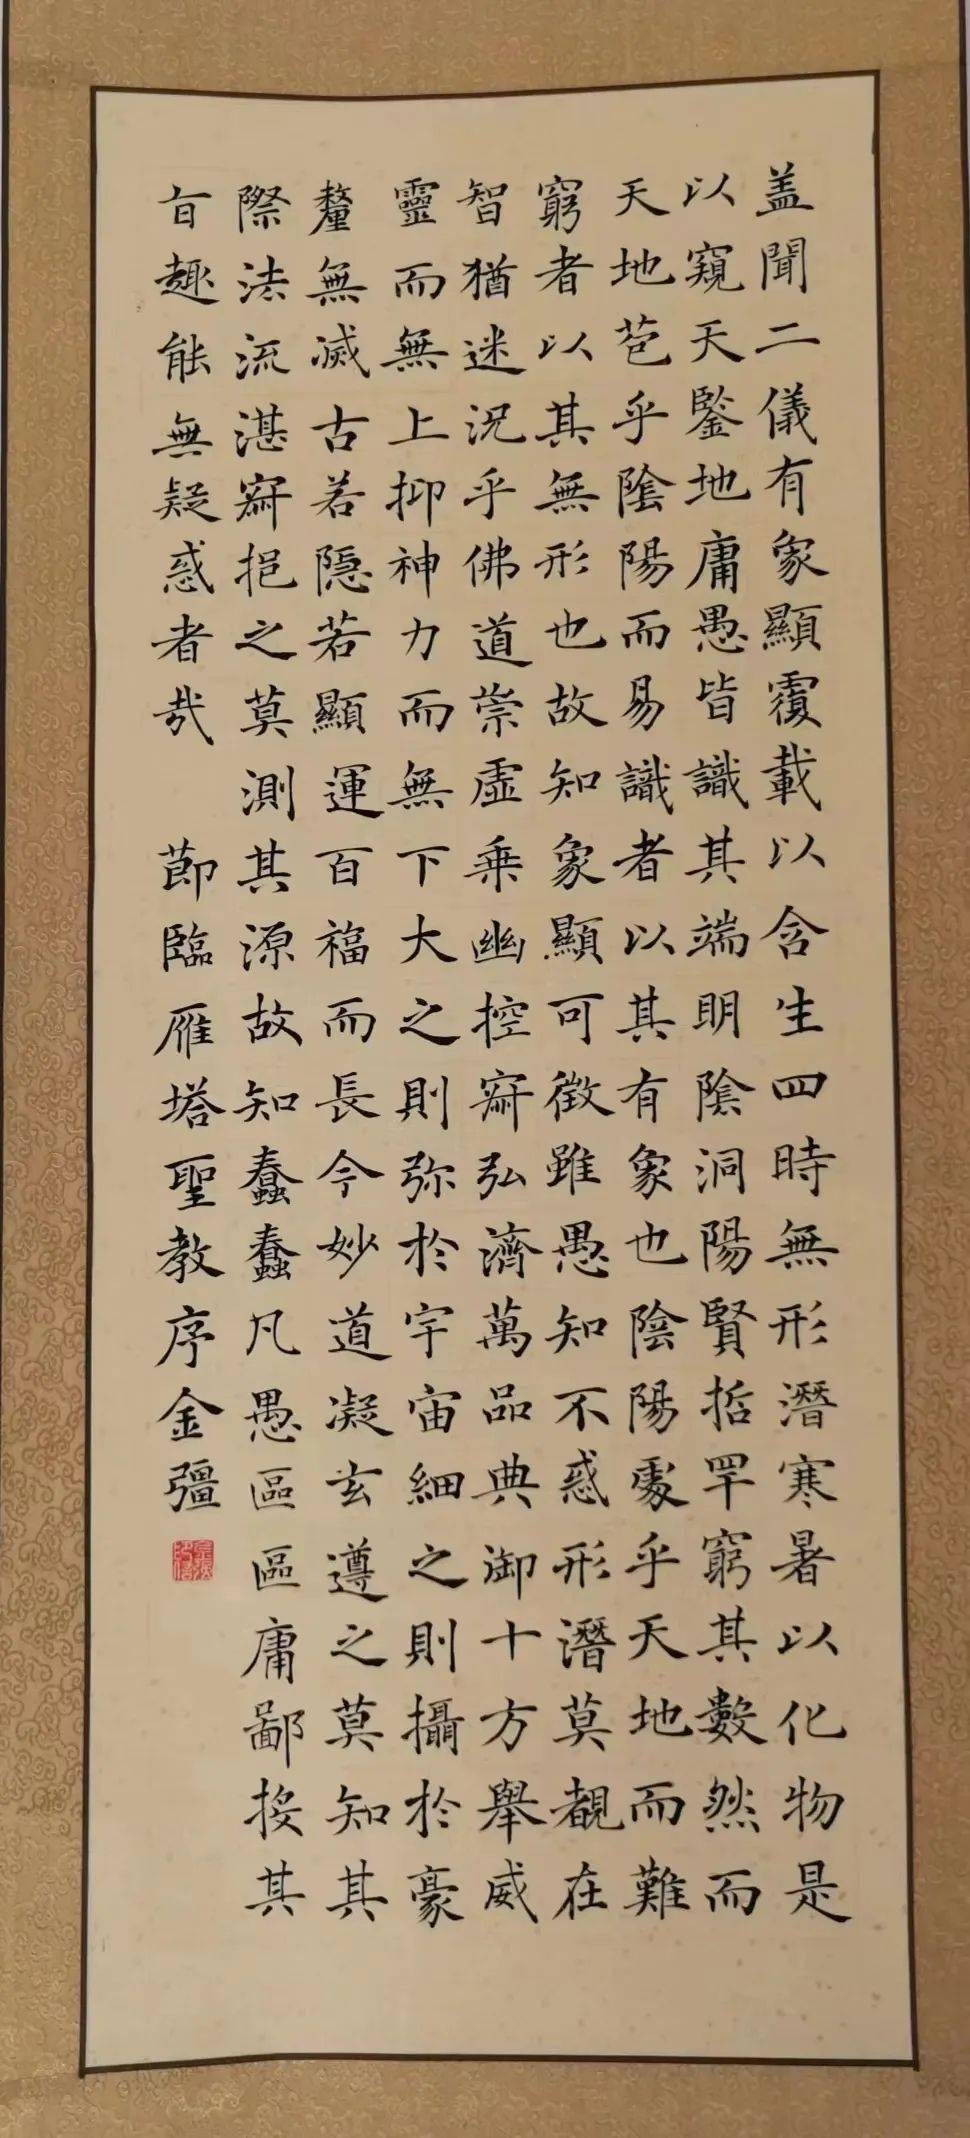 盖聞二儀有象顯覆載以含生四時無形潛寒暑以化物是
以窺天鑒地庸愚皆識其端明陰洞陽賢哲罕窮其數然而
天地苞乎陰陽而易識者以其有象也陰陽處乎天地而難
窮者以其無形也故知象顯可徵雖愚知不惑形潛莫覩在
智猶迷況乎佛道崇虛乘幽控寂弘濟萬品典御十方舉威
靈而無上抑神力而無下大之則弥於宇宙細之則攝於豪
釐無滅古若隱若顯運百福而長今妙道凝玄遵之莫知其
際法流湛寂挹之莫測其源故知蠢蠢凡愚區區庸鄙投其
旨趣能無疑惑者哉 節臨雁塔聖教序金彊